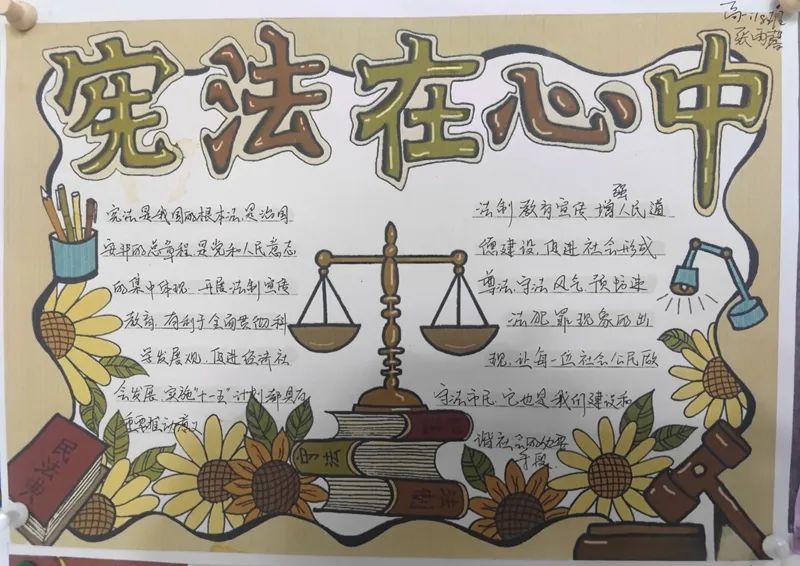 宪法在心中
高一18班
宪法是我国的根本法,是治国
安邦的总章程,是党和人民意志
的集中体现,开展法制宣传
教育,有利于全面贯彻科
学发展观,促进经济社
会发展,实施"十一五"计划都具有
重要推动意义
法制教育宣传增强人民道
德建设,促进社会形成
尊法、守法风气,预防违
法犯罪现象的出
现,让每一位社会公民做
守法市民,它也是我们建设和
谐社会的必要
手段.
民法典
守法
法制